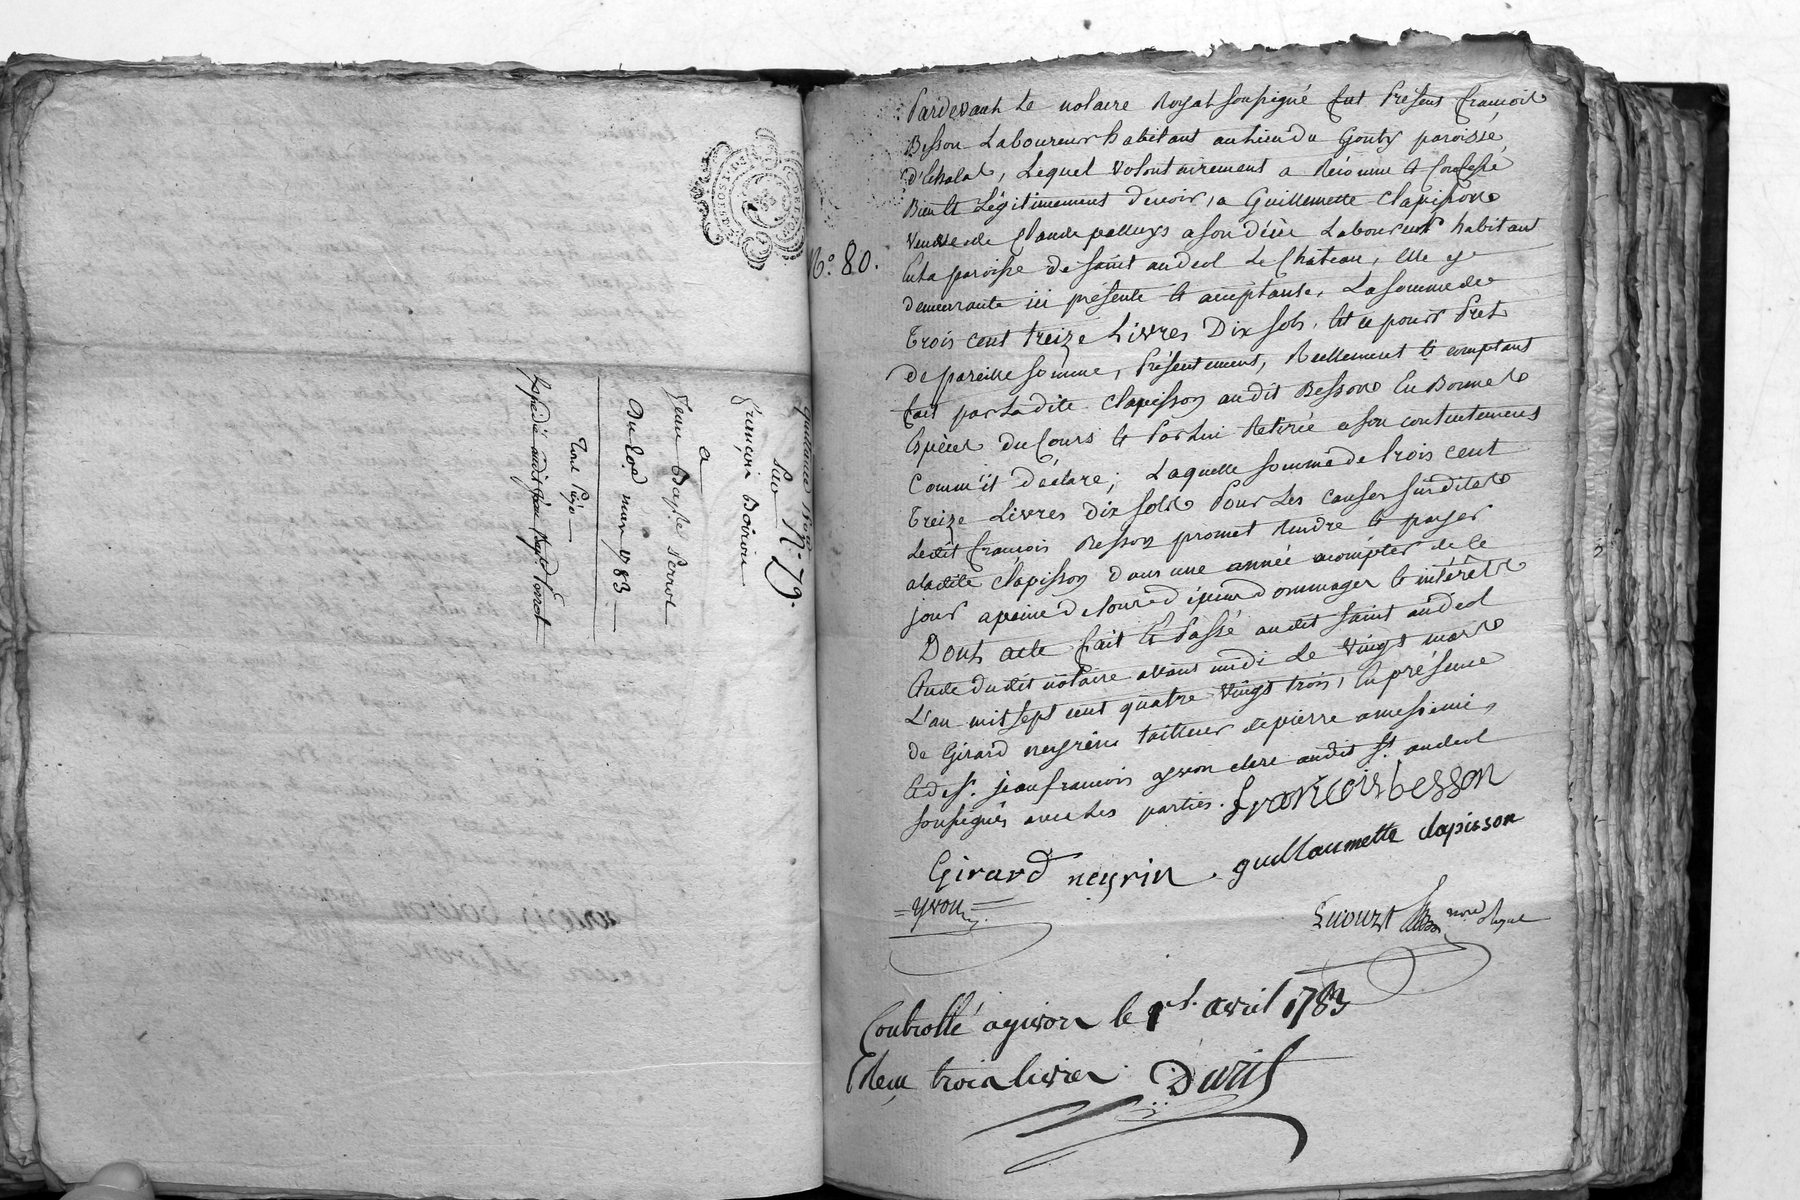 N.° 79.
françois Boiron
a
Jean Bapte. perrot
Du 20e. mars 1783
Expédié audit jean Bapt.
N.° 80.
Pardevant Le notaire Royal soussigné fut Présent françois
Besson Laboureur habitant au Lieu du Gonty paroisse
d'Echalas, Lequel volontairement a Reconnu et Confessé
Bien et Légitimement devoir, a Guillemette Clapisson
veuve de Claude palluys a son décès Laboureur habitant
En la paroisse de saint andeol Le Château, elle y
demeurante ici présente et acceptante, La somme de
Trois cent treize Livres Dix sols, Et ce pour Pret
de pareille somme, Présentement, Réellement et comptant
fait par Ladite Clapisson audit Besson En Bonnes
Espèces du Cours et Par Lui Retirée a son contentement
Comm'il déclare; Laquelle somme de trois cent
Treize Livres Dix sols Pour Les causes susdites
Ledit françois Besson promet Rendre et payer
aladite Clapisson dans une année acompter de ce
jour a peine de tous dépens dommages et intérêts
Dont acte fait et Passé audit saint andeol
Etude dudit notaire avant midi Le vingt mars
L'an mil sept cent quatre vingt trois, En présence
de Girard neyrin tailleur de pierre a messimi,
et de sr. jean françois yvon clerc audit st. andeol
soussignés avec Les parties. françois besson
Girard neyrin . guillaumette clapisson
= yvon =
nore Royal
Controllé a givors le 1er. avril 1783
Reçu trois livres